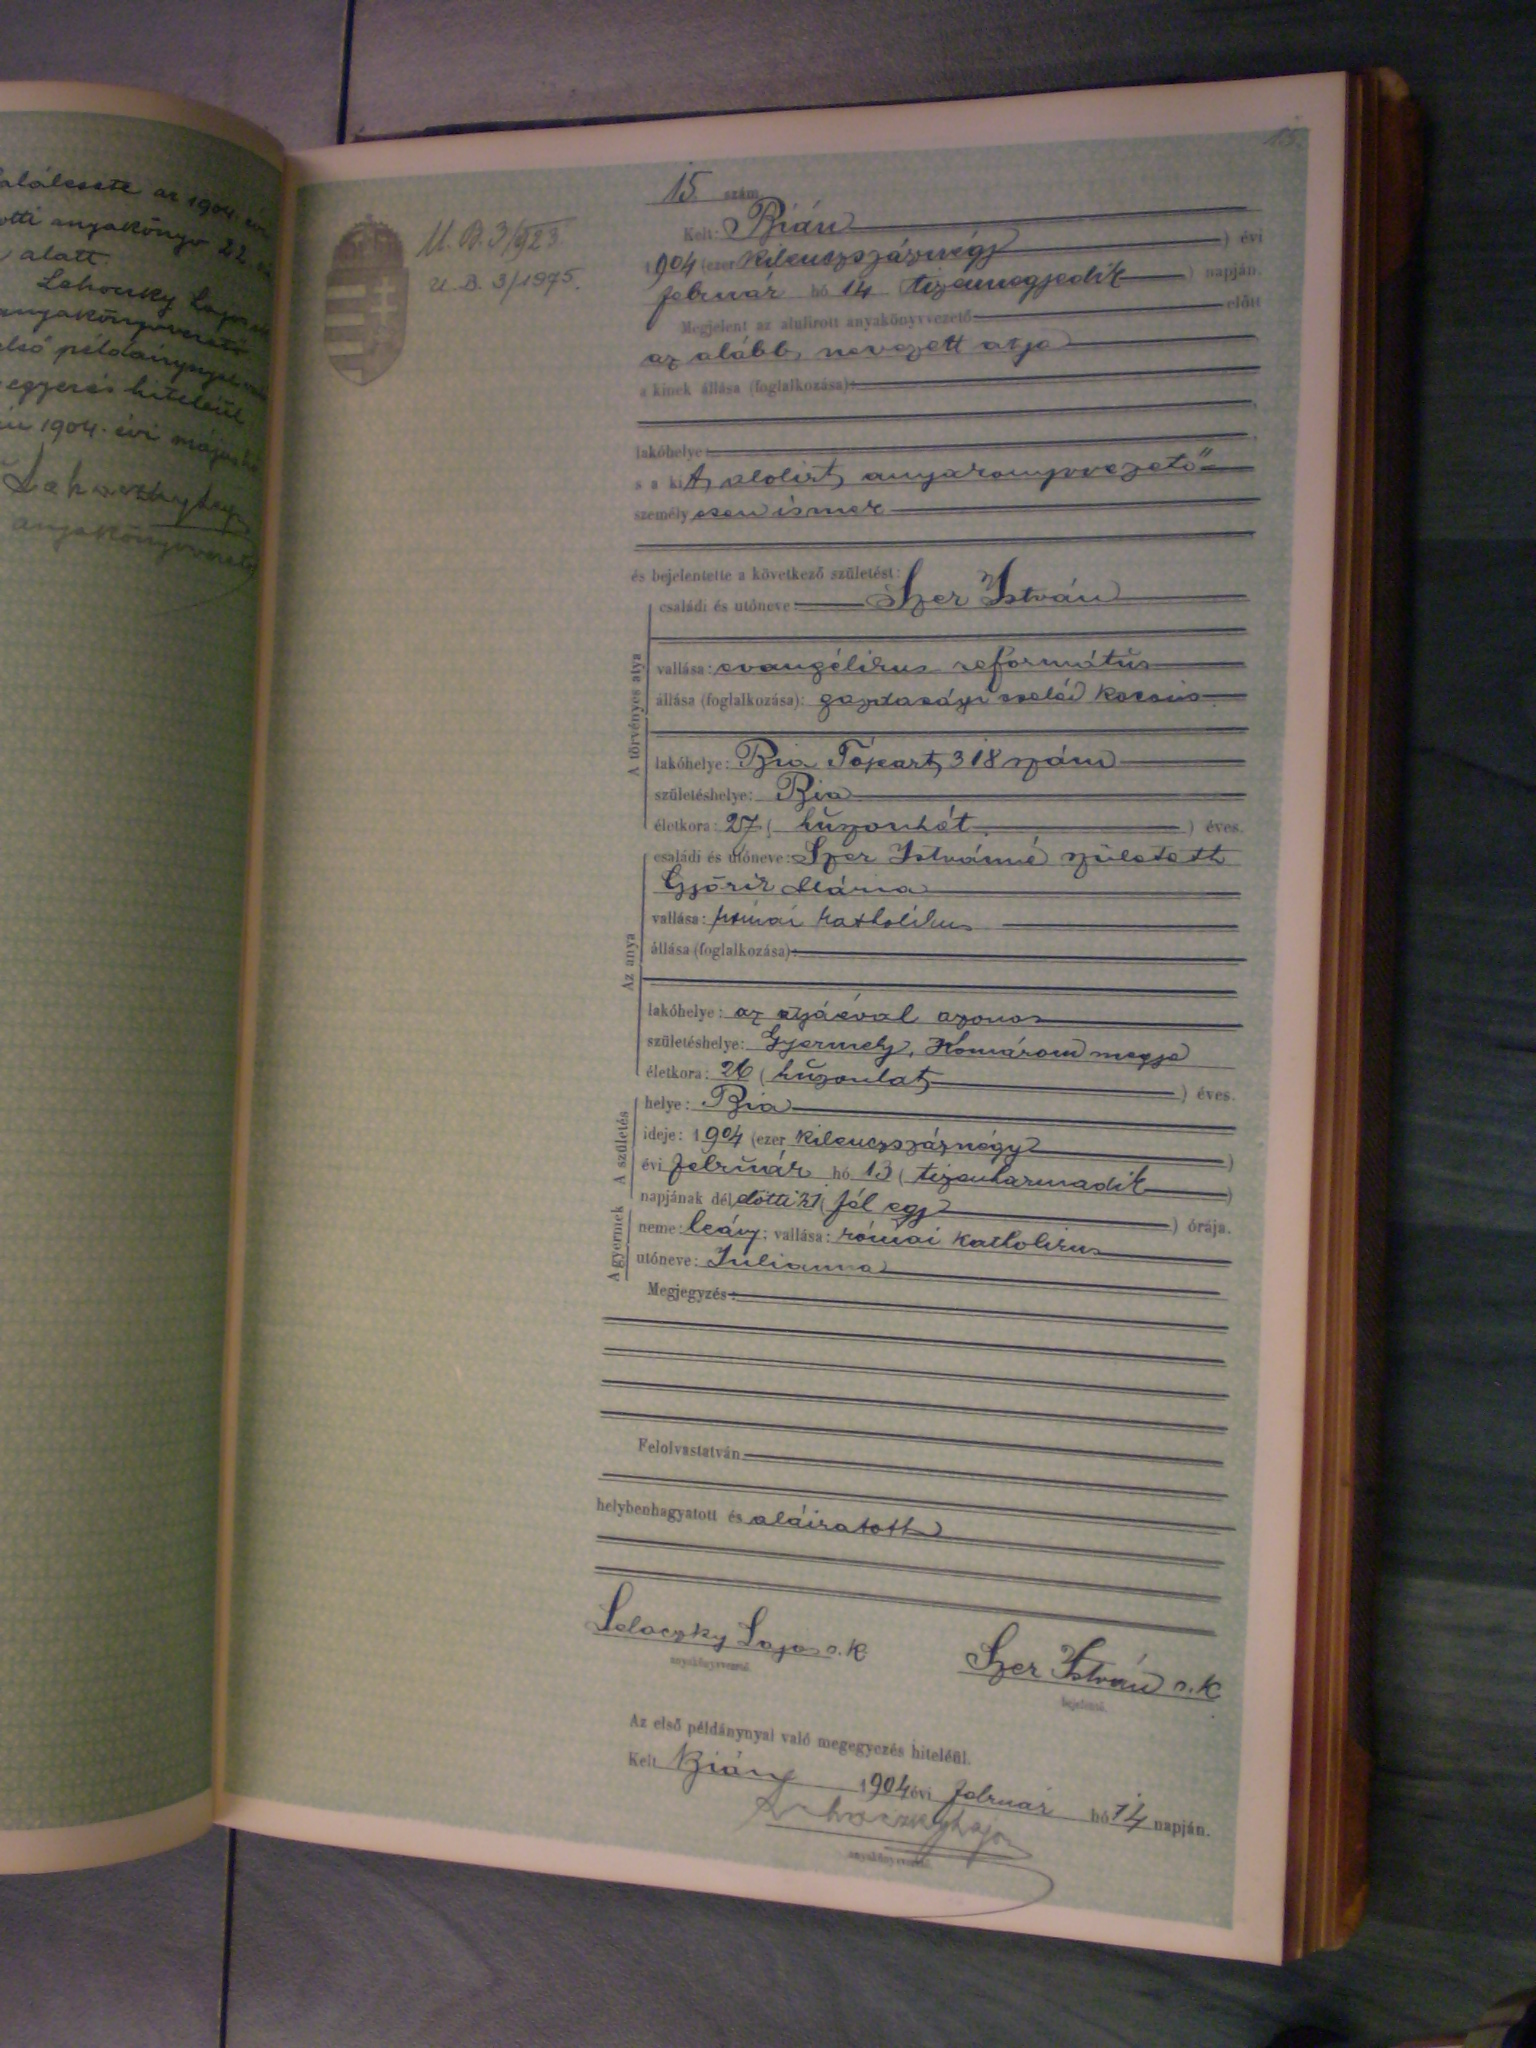 alálesete az 1904. évi
otti anyakönyv 22.
alatt.
Lehoczky Lajos
anyakönyvvezető
első példánynyal
egyezés hiteléül
1904. évi május hó
anyakönyvvezető
15.
15. szám.
U. B. 3/923
U. B. 3/1975.
Kelt: Bián
1904 (ezer kilenczszáznégy ) évi
február hó 14 ( tizennegyedik ) napján.
Megjelent az alulirott anyakönyvvezető előtt
az alább nevezett atya
a kinek állása (foglalkozása):
lakóhelye:
s a kit alolirt anyakönyvvezető
személyesen ismer
és bejelentette a következő születést:
A törvényes atya
családi és utóneve: Szer István
vallása: evangélikus református
állása (foglalkozása): gazdasági cseléd kocsis
lakóhelye: Bia Tópart 318 szám
születéshelye: Bia
életkora: 27 ( huszonhét ) éves.
Az anya
családi és utóneve: Szer Istvánné született
Győrik Mária
vallása: római katholikus
állása (foglalkozása):
lakóhelye: az atyáéval azonos
születéshelye: Gyermely, Komárom megye
életkora: 26 ( huszonhat ) éves.
A születés
helye: Bia
ideje: 1904 (ezer kilenczszáznégy )
évi február hó 13 ( tizenharmadik )
napjának dél előtti ½1 ( fél egy ) órája.
A gyermek
neme: leány; vallása: római katholikus
utóneve: Julianna
Megjegyzés:
Felolvastatván
helybenhagyatott és aláiratott
Lehoczky Lajos s. k
anyakönyvvezető.
Szer István s. k
bejelentő.
Az első példánynyal való megegyezés hiteléül.
Kelt Bián 1904 évi február hó 14 napján.
Lehoczky Lajos
anyakönyvvezető.